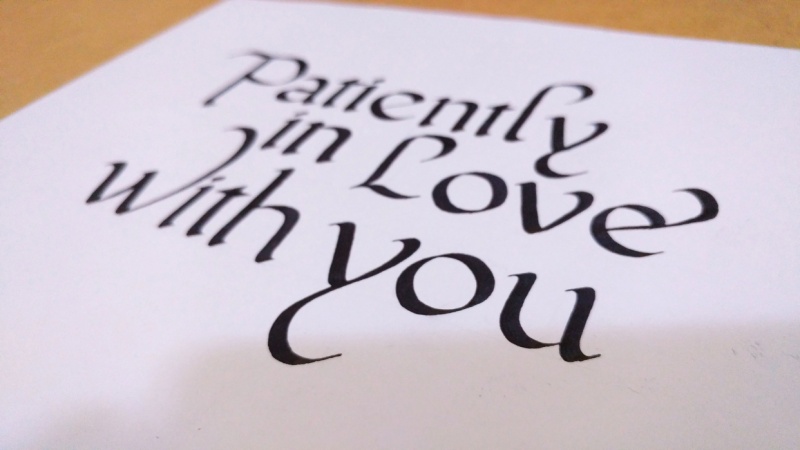 Patiently
in Love
with you